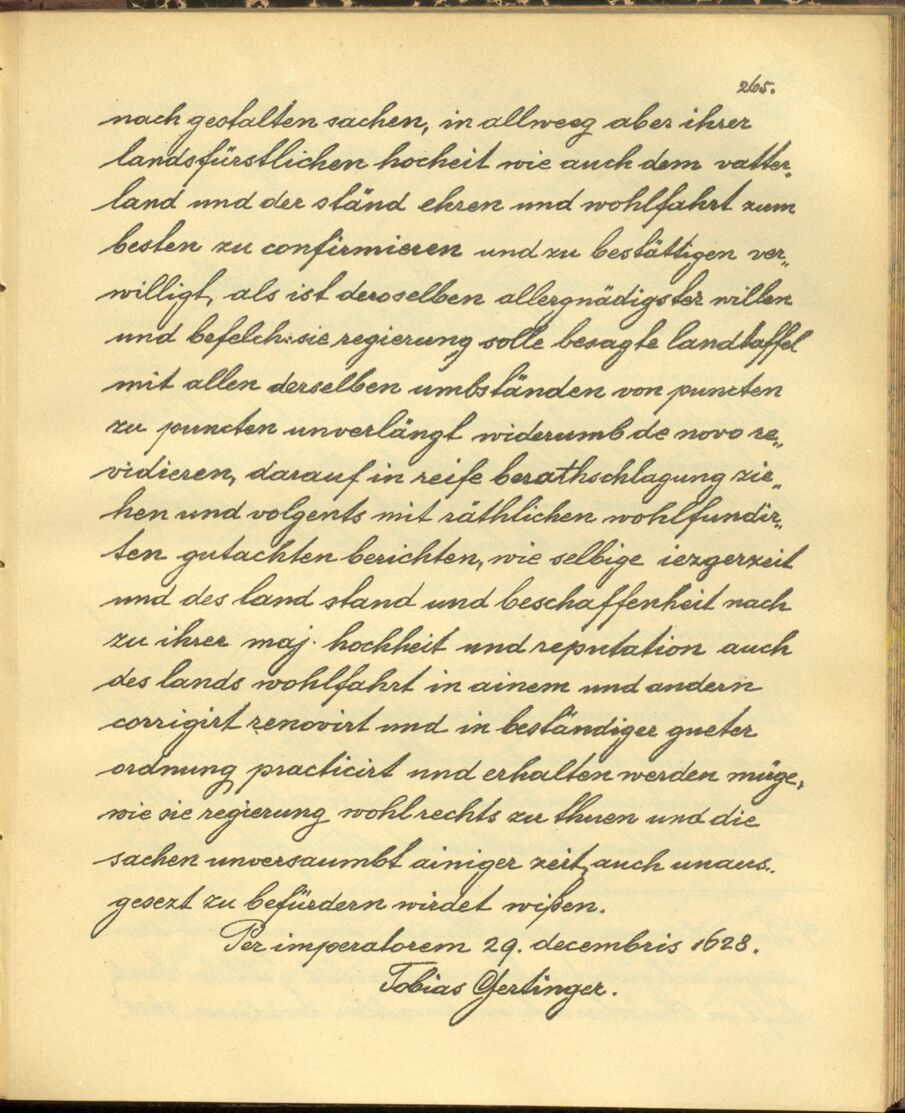 265.
nach gestalten sachen, in allweeg aber ihrer
landsfürstlichen hocheit wie auch dem vatter„
land und der ständ ehren und wohlfahrt zum
besten zu confirmieren und zu bestättigen ver„
willigt, als ist deroselben allergnädigster willen
und befelch: sie regierung solle besagte landtaffel
mit allen derselben umbständen von puncten
zu puncten unverlängt widerumb de novo re„
vidieren, darauf in reife berathschlagung zie„
hen und volgents mit räthlichen wohlfundir„
ten gutachten berichten, wie selbige iezgerzeit
und des land stand und beschaffenheit nach
zu ihrer maj. hochheit und reputation auch
des lands wohlfahrt in ainem und andern
corrigirt renovirt und in beständiger gueter
ordnung practicirt und erhalten werden müge,
wie sie regierung wohl rechts zu thuen und die
sachen unversaumbt ainiger zeit, auch unaus„
gesezt zu befürdern wirdet wißen.
Per imperatorem 29. decembris 1628.
Tobias Gertinger.